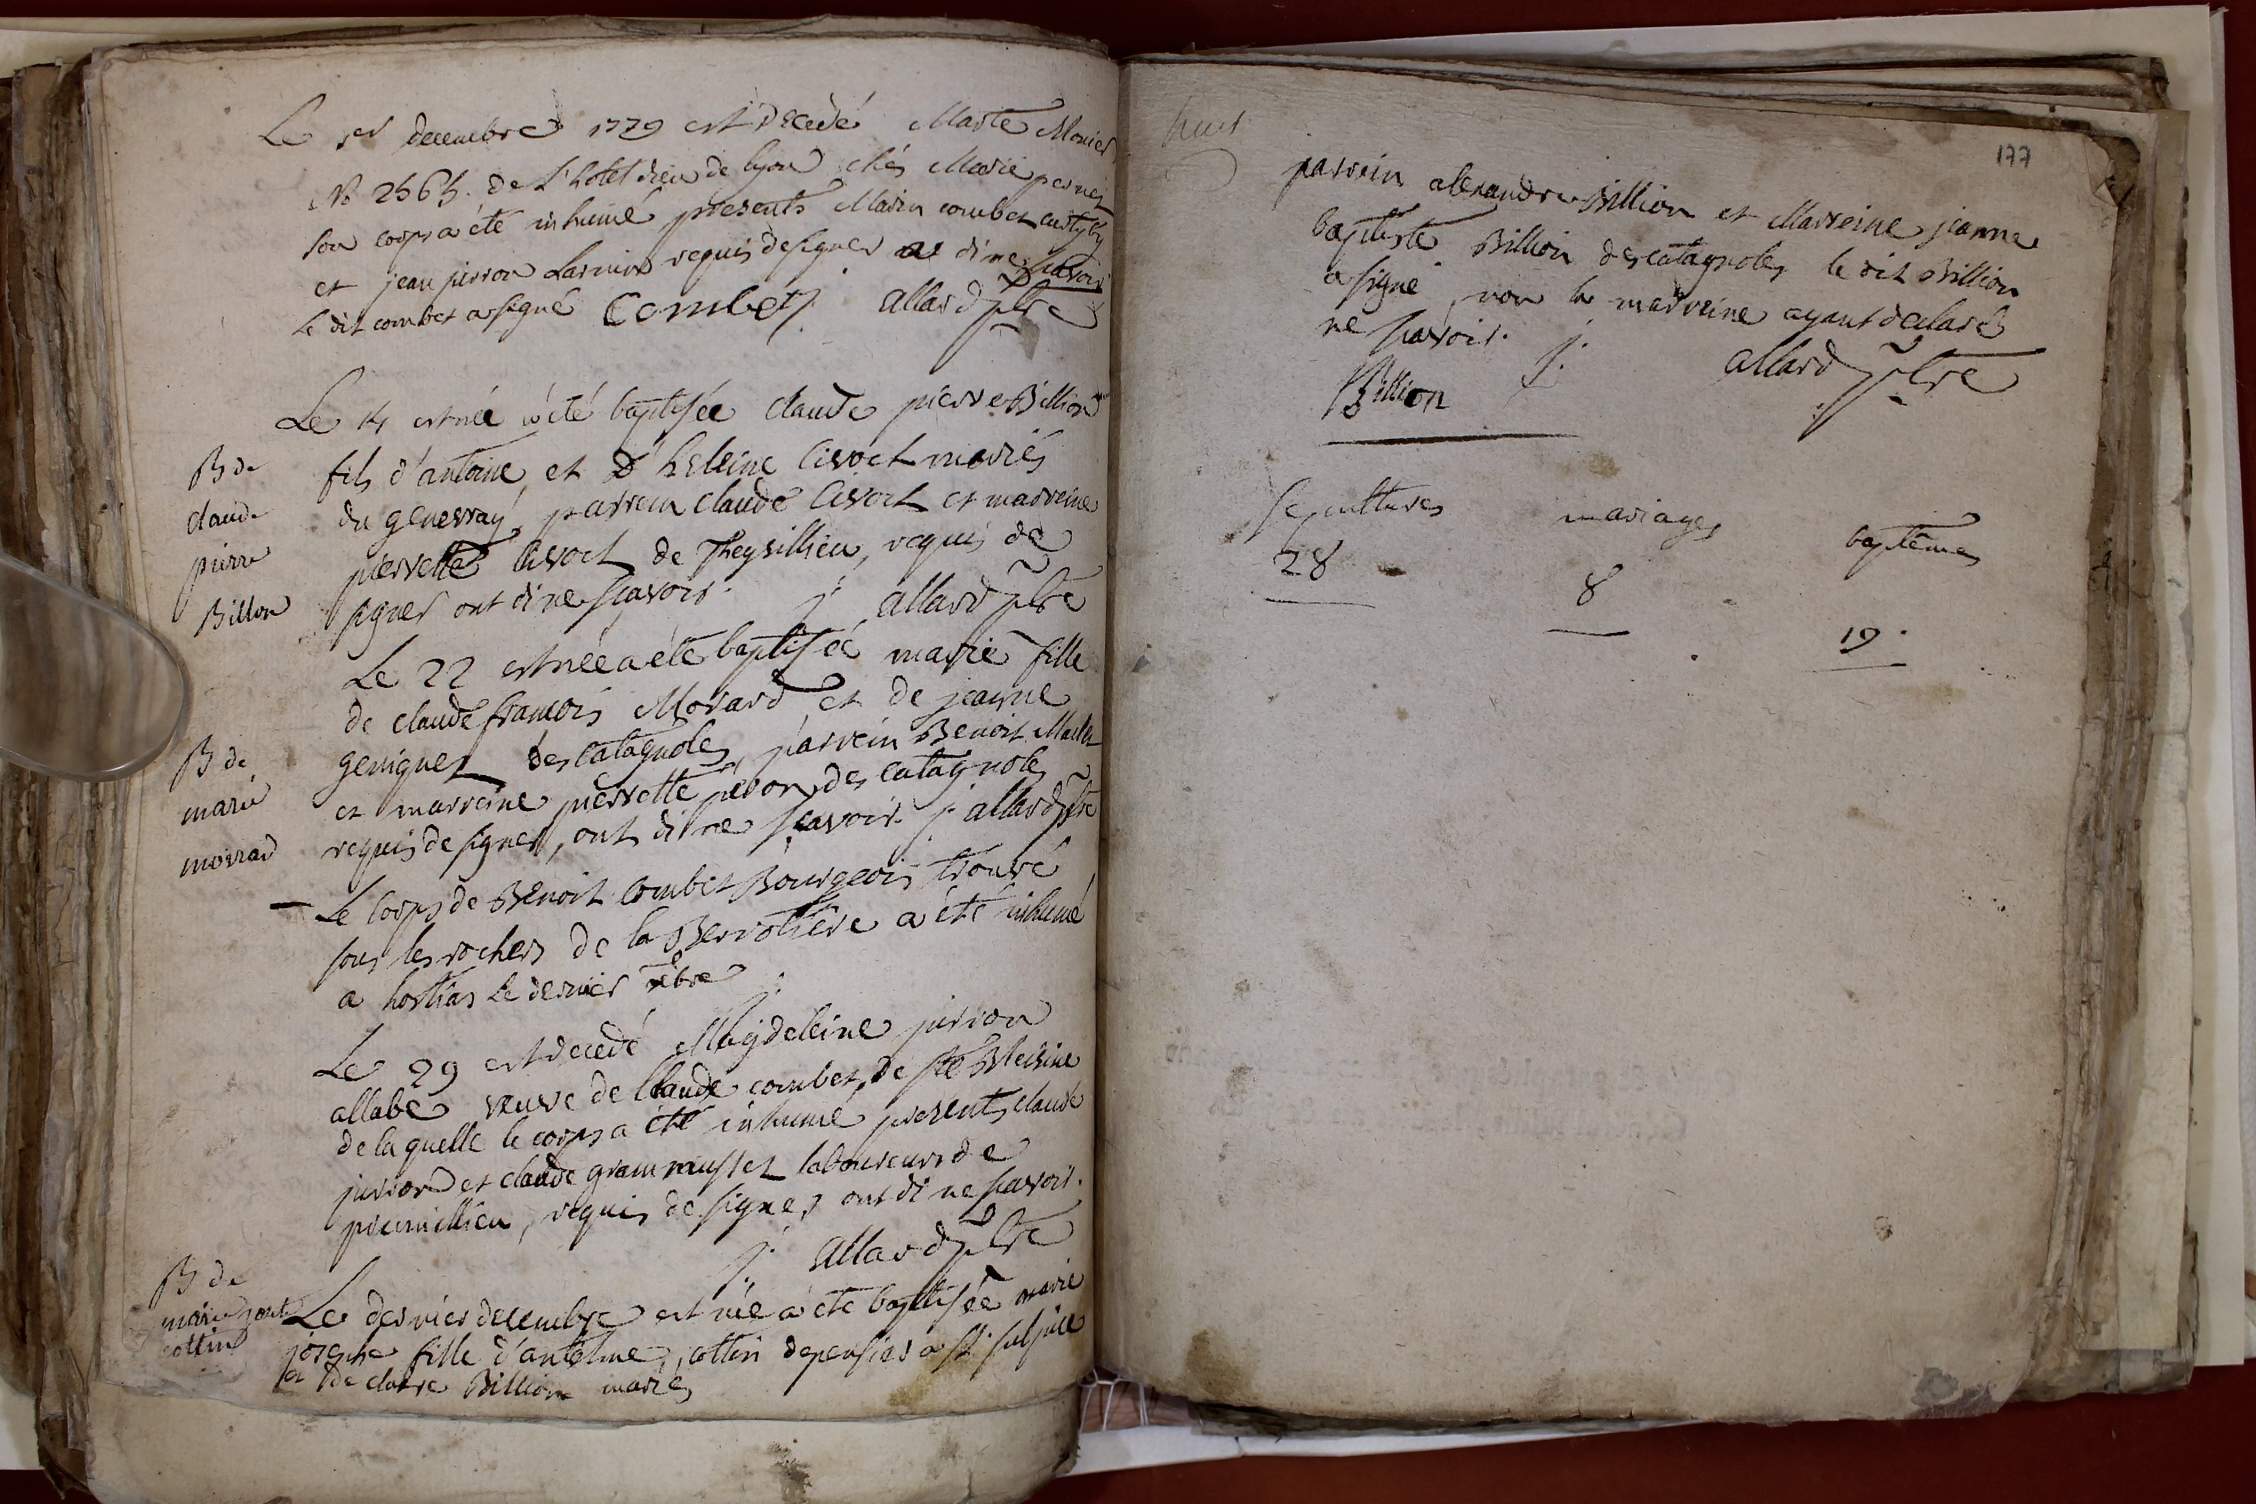 Le 1er decembre 1779 est decedé Marte Monier
N° 2565. de L'hotel dieu de lyon chés Marie pernet
son corps a été inhumé presents Marin combet
et jean pierron Larmier requis de signer di ne scavoir
le dit combet a signé Combet j. allard ptre
Le 14 est née a été baptisée claude pierre Billion
fils d'antoine et d'heleine livoct mariés
du genevray, parrein claude livoct et marreine
pierrette livoct de Theysillieu, requis de
signer ont di ne scavoir. j. allard ptre
B de
claude
pierre
Billion
Le 22 est née a été baptisée marie fille
de claude françois Morard et de jeanne
geniquet des catagnoles, parrein Benoit
et marreine pierrette peron des catagnoles
requis de signer, ont di ne scavoir. j. allard ptre
B de
marie
morrad
Le corps de Benoit combet Bourgeois trouvé
sous les rochers de la Berrotière a été inhumé
a hostias le dernier 9bre
Le 29 est decedé Magdeleine pirron
allabe veuve de claude combet, de ste Bleisine
de la quelle le corps a été inhumé presents claude
pirron et claude grammusset laboureurs de
premillieu, requis de signer ont di ne scavoir.
j. allard ptre
B de
marie
cottin
Le dernier decembre est née a été baptisée marie
josephe fille d'antelme cottin depensier a st sulpice
et de claire Billion mariés
177
parrein alexandre Billion et Marreine jeanne
baptiste Billion des catagnoles le dit Billion
a signé, non la marreine ayant declaré
ne scavoir. j. allard ptre
Billion
sepultures mariages baptemes
28 8 19.